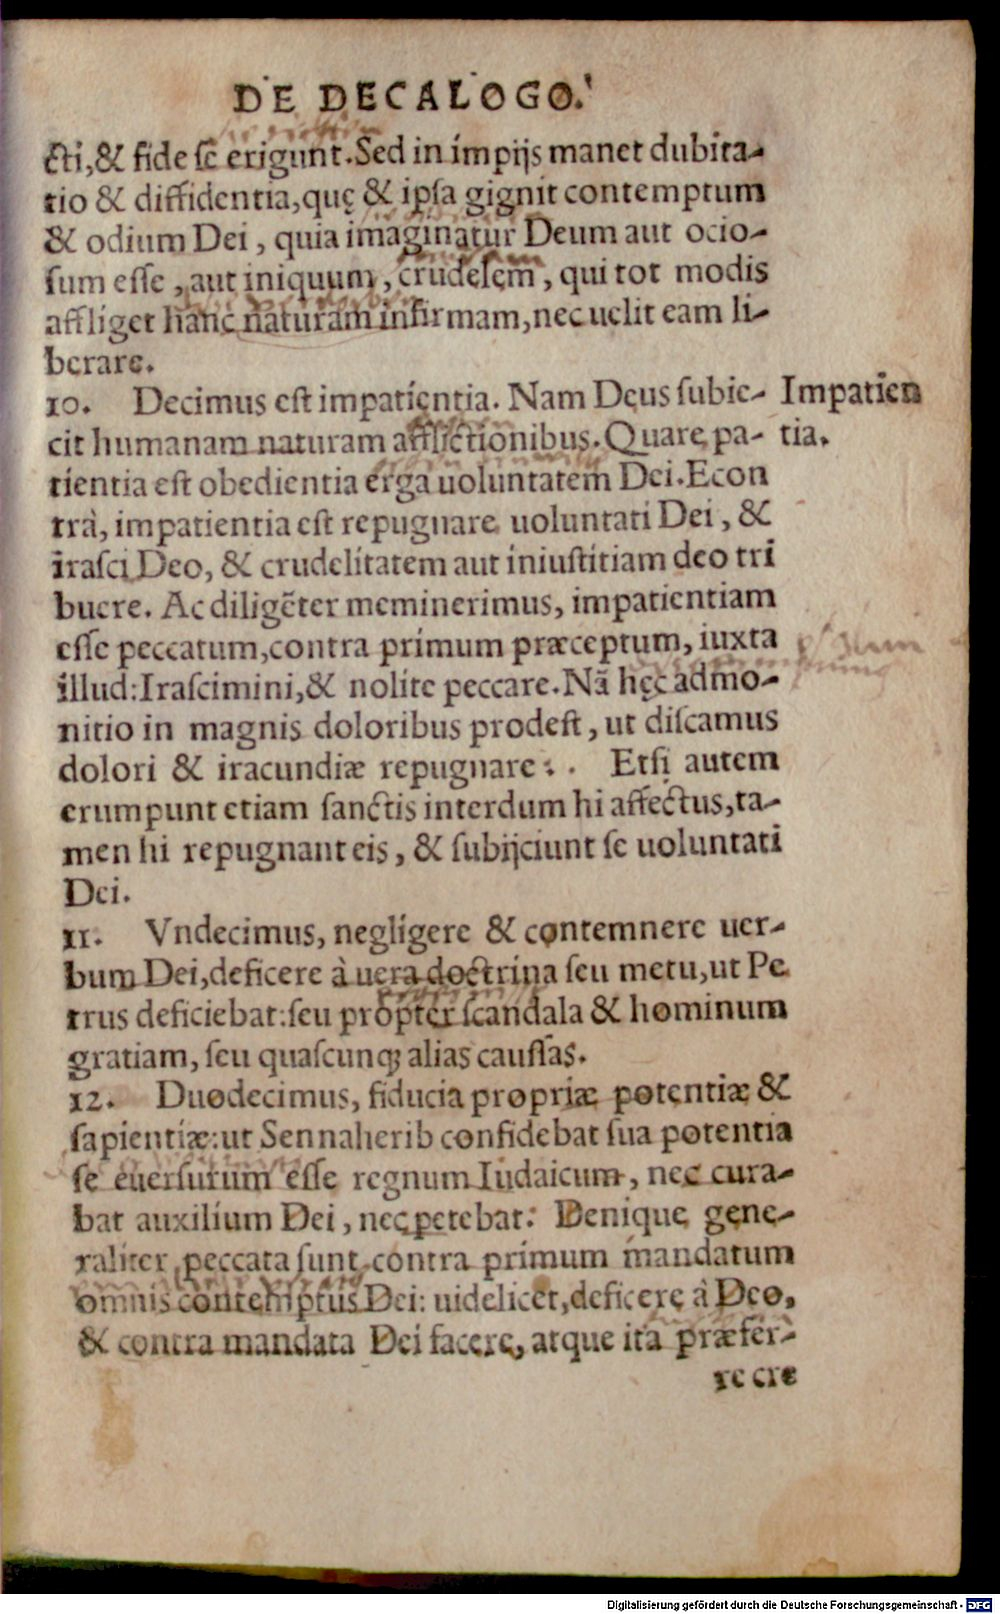 DE DECALOGO.
sti,& fide sẽ erigunt.Sed in impijs manet dubita-
tio & diffidentia,quę & ipsa gignit contemptum
& odium Dei, quia imaginatur Deum aut ocio-
sum esse, aut iniquum, crudelem, qui tot modis
affliget hanc naturam infirmam,nec uelit eam li-
berare.
10. Decimus est impatientia. Nam Deus subie- Impatien
cit humanam naturam afflictionibus.Quare pa- tia.
tientia est obedientia erga uoluntatem Dei.Econ
trà, impatientia est repugnare uoluntati Dei, &
irasci Deo, & crudelitatem aut iniustitiam deo tri
buere. Ac diligẽter meminerimus, impatientiam
esse peccatum,contra primum præceptum, iuxta
illud:Irascimini,& nolite peccare.Nã hęc admo-
nitio in magnis doloribus prodest, ut discamus
dolori & iracundiæ repugnare. Etsi autem
erumpunt etiam sanctis interdum hi affectus,ta-
men hi repugnant eis, & subijciunt se uoluntati
Dei.
11. Vndecimus, negligere & contemnere uer-
bum Dei,deficere à uera doctrina seu metu,ut Pe
trus deficiebat:seu propter scandala & hominum
gratiam, seu quascunq; alias caussas.
12. Duodecimus, fiducia propriæ potentiæ &
sapientiæ:ut Sennaherib confidebat sua potentia
se euersurum esse regnum Iudaicum, nec cura-
bat auxilium Dei, nec petebat. Denique gene-
raliter peccata sunt contra primum mandatum
omnis contemptus Dei: uidelicet,deficere à Deo,
& contra mandata Dei facere, atque ita præfer-
re cre
Digitalisierung gefördert durch die Deutsche Forschungsgemeinschaft - DFG